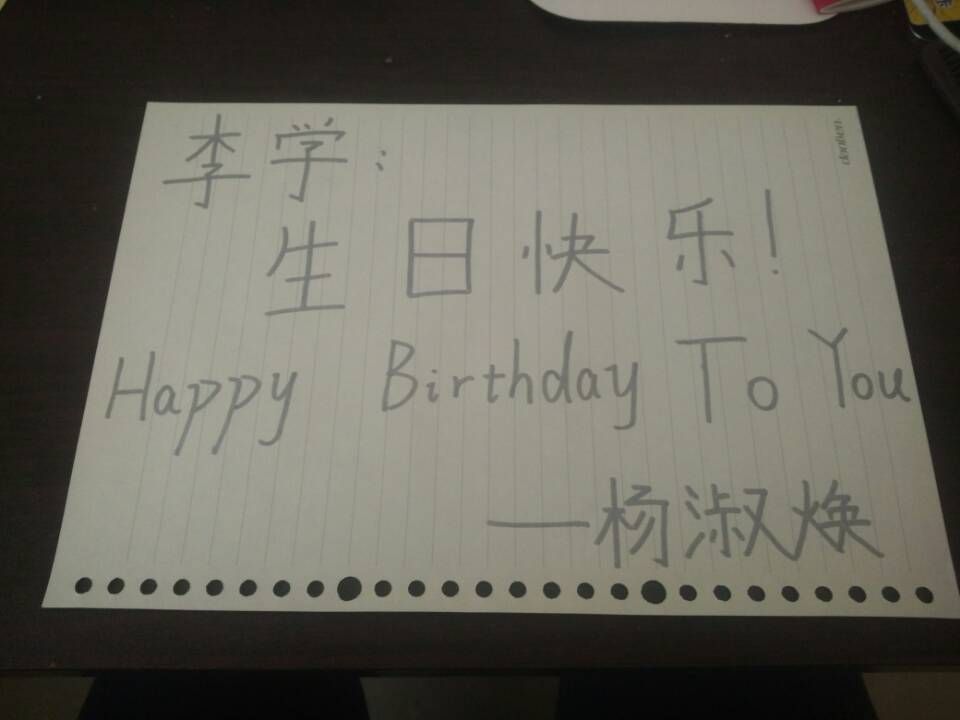 李学：
生日快乐！
Happy Birthday To You
—杨淑焕